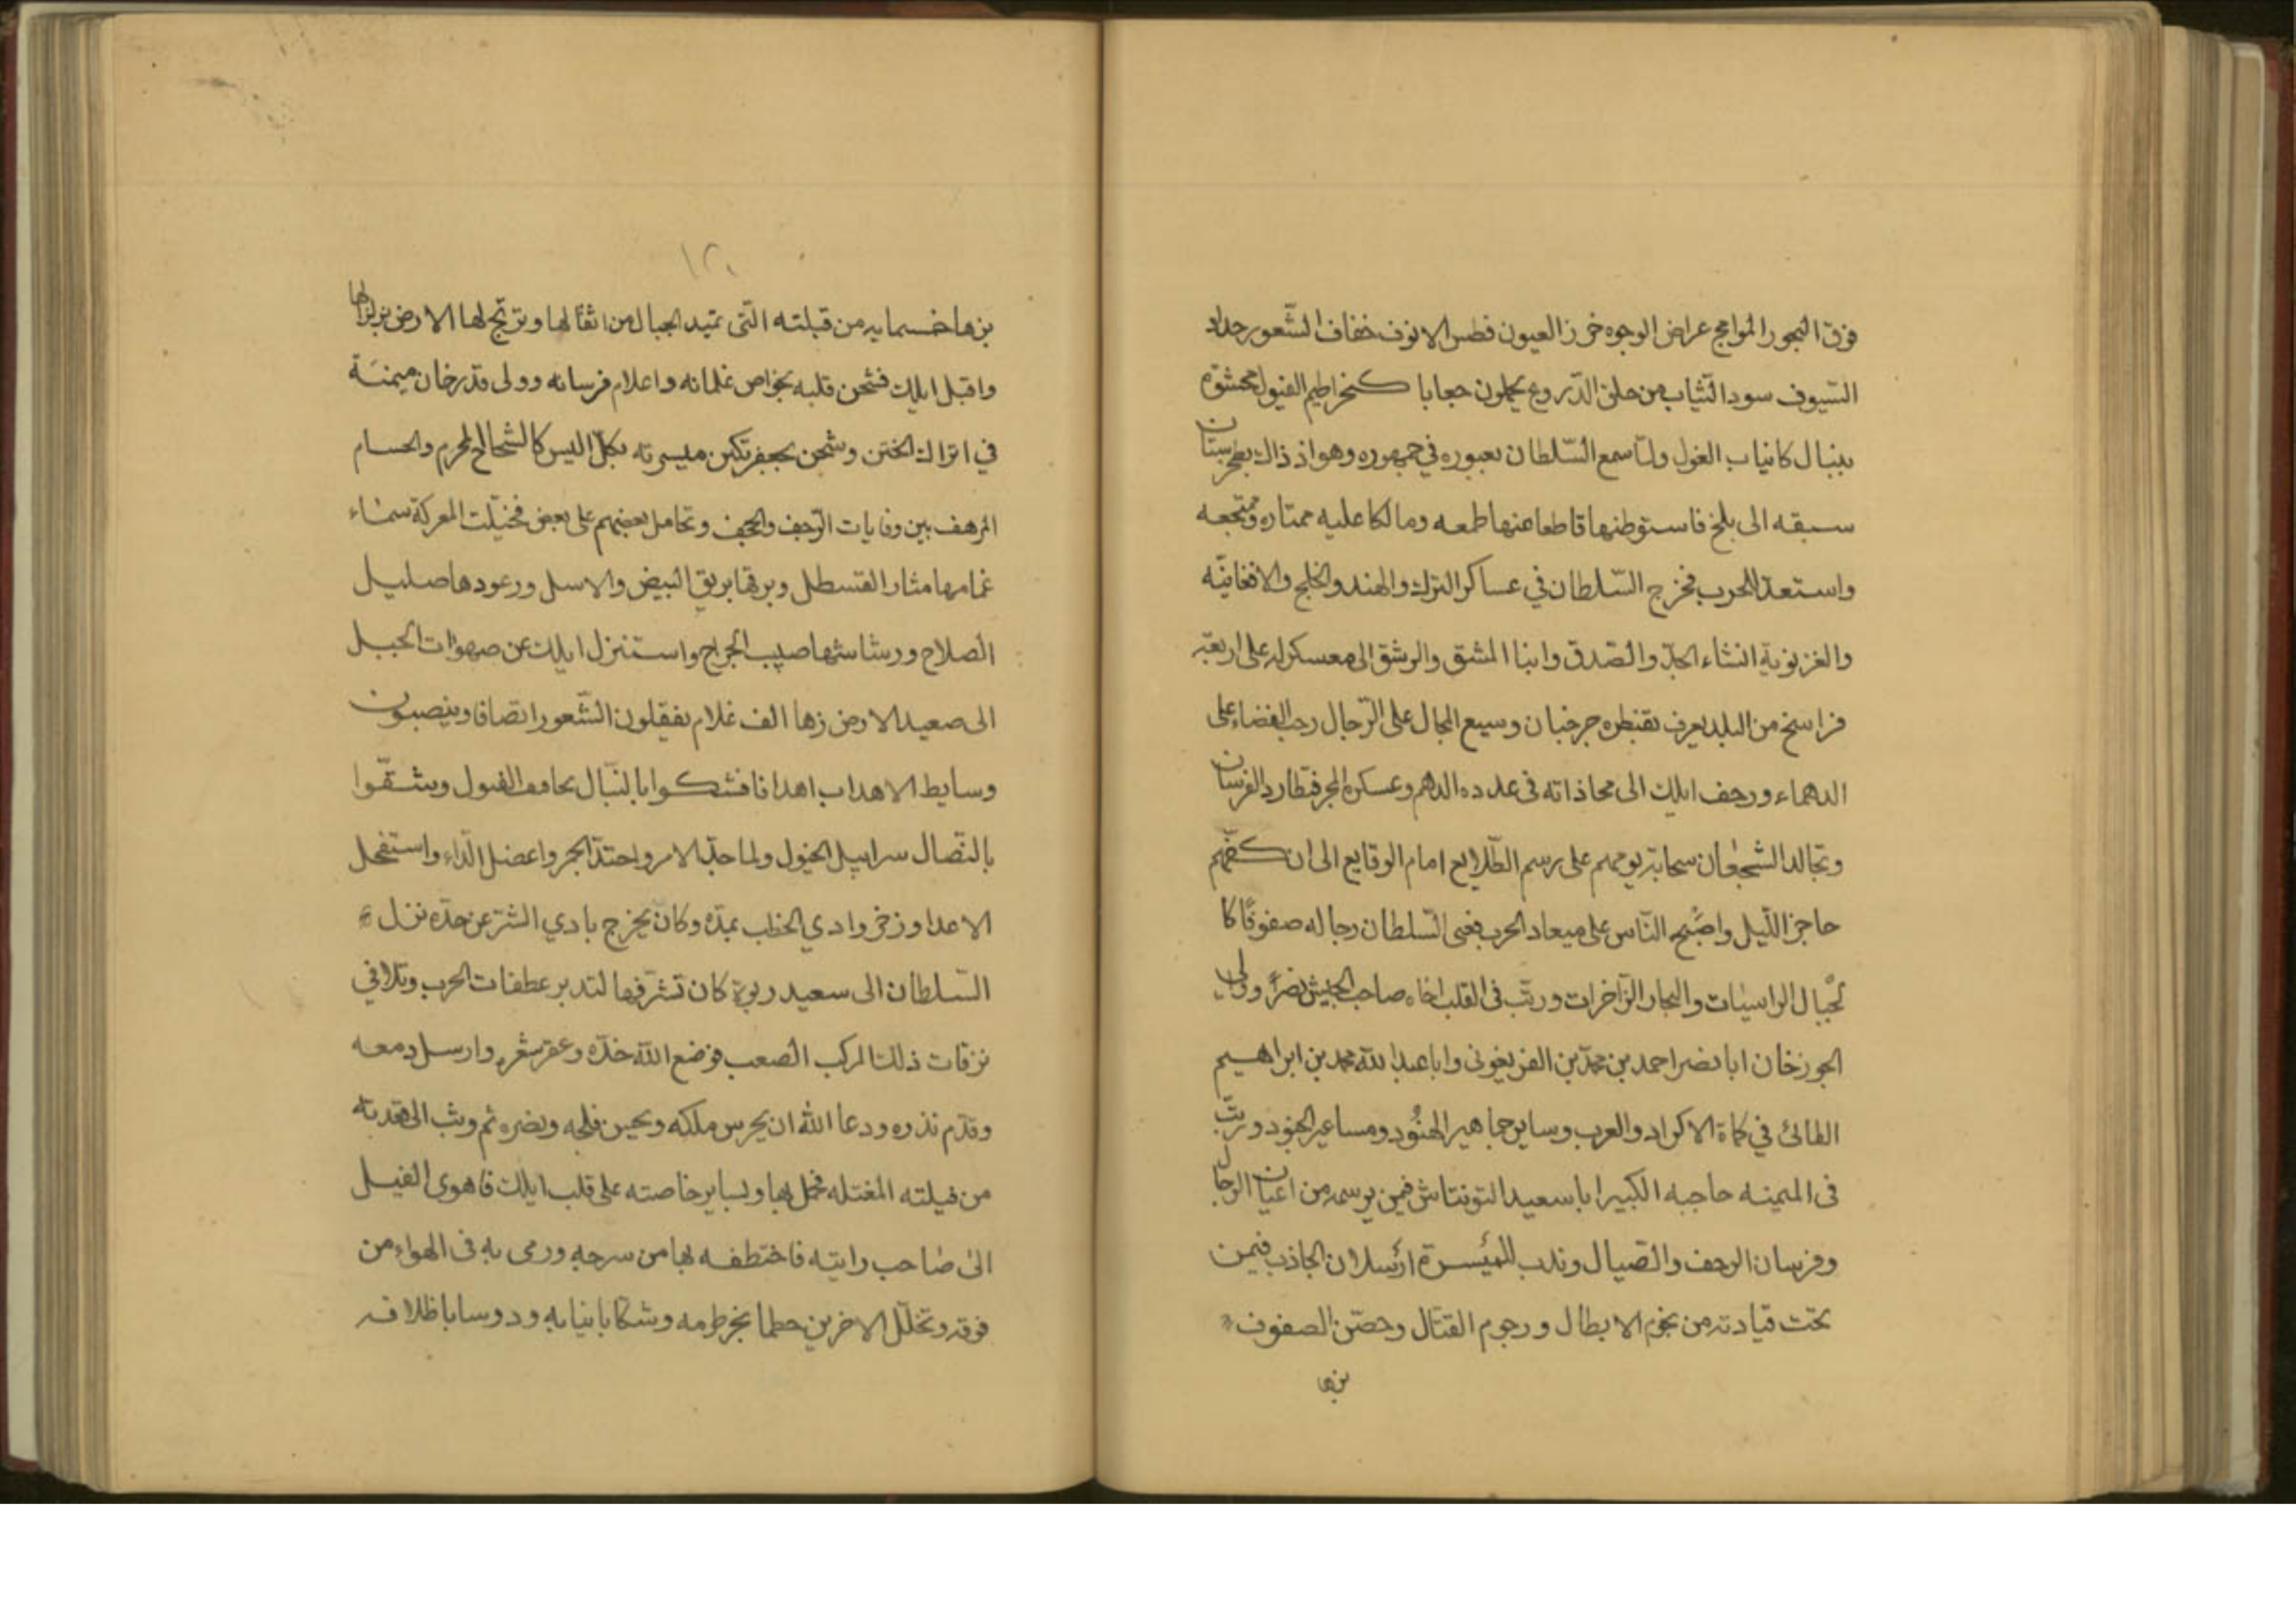 فوق البحور المواج عراض الوجوه خزر العيون فطس الانوف خفاف الشّعور حداد
السّيوف سود الثّياب من حلق الدّروع يحملون جعابا كخراطيم الفيول محشوّة
بنبال كانياب الغول ولمّا سمع السّلطان بعبوره في جمهوره وهو اذ ذاك بطخرستان
سبقه الى بلخ فاستوطنها قاطعا عنها طمعه ومالكا عليه ممتاره ومنتجعه
واستعدّ للحرب فخرج السّلطان في عساكر الترك والهند والخلج والافغانيّه
والغزنويّة انشاء الجدّ والصّدق وابنا المشق والرشق الى معسكر له على اربعة
فراسخ من البلد يعرف بقنطره جرخبان وسيع المجال على الرّجال رحب الفضاء على
الدهماء ورجف ايلك الى محاذاته فى عدده الدهم وعسكره المجر فتطارد الفرسان
وتجالد الشّجعان سحابة يومهم على رسم الطّلايع امام الوقايع الى ان كفّهم
حاجز اللّيل واصبح النّاس على ميعاد الحرب فعبى السّلطان رجاله صفوفًا كا
لجبال الراسيات والبحار الزّاخرات ورتّب فى القلب اخاه صاحب الجيش نصرًا وولى
الجوزخان ابا نصر احمد بن محمّد بن الفريغونى وابا عبد الله محمد بن ابراهيم
الطائى في كماة الاكراد والعرب وساير جماهير الهنُود ومساعير الجنود ورتّب
فى الميمنه حاجبه الكبير ابا سعيد التونتاش فيمن برسمه من اعيان الرجال
وفرسان الزحف والصّيال وندب للميسرة ارسلان الجاذب فيمن
تحت قيادته من نجوم الابطال ورجوم القتال وحصّن الصفوف
بزها
١٢٠
بزها خسمايه من قبلته التّى تميد الجبال من اثقالها وترتجّ لها الارض بزلزالها
واقبل ايلك فشحن قلبه بخواص غلمانه واعلام فرسانه وولى قدرخان ميمنة
في اتراك الختن وشحن بجعفر تكين ميسرته بكلّ اليس كالشجاع المحرم والحسام
المرهف بين وفايات الزّحف والحجف وتحامل بعضهم على بعض فخيّلت المعركة سماء
غمامها مثار القسطل وبرقها بريق البيض والاسل ورعودها صليل
الصلاح ورشاشها صبيب الجراح واستنزل ايلك عن صهوات الخيل
الى صعيد الارض زها الف غلام يفقلون الشّعور انصافا وينصبون
وسايط الاهداب اهدافا فشكوا بالنبّال تجافيف الفيول وشقّوا
بالنصّال سرابيل الخيول ولما حدّ الامر واحتدّ الجمر واعضل الدّاء واستفحل
الاعدا وزخر وادي الخطب بمدّه وكان يخرج بادي الشّر عن حدّه نزل
السّلطان الى سعيد ربوة كان تشرّفها لتدبر عطفات الحرب وتلافي
نزقات ذلك المركب الصعب فوضع للّه خدّه وعفر شعره وارسل دمعه
وقدّم نذره ودعا الله ان يحرس ملكه ويحسن فلجه ونصره ثم وثب الى قعدته
من فيلته المغتله فحمل بها وبساير خاصته على قلب ايلك فاهوى الفيل
الى صاحب رايته فاختطفه بها من سرجه ورمى به فى الهواء من
فوقه وتخلّل الاخرين حطما بخرطومه وشكّا بانيابه ودوسا باظلافه